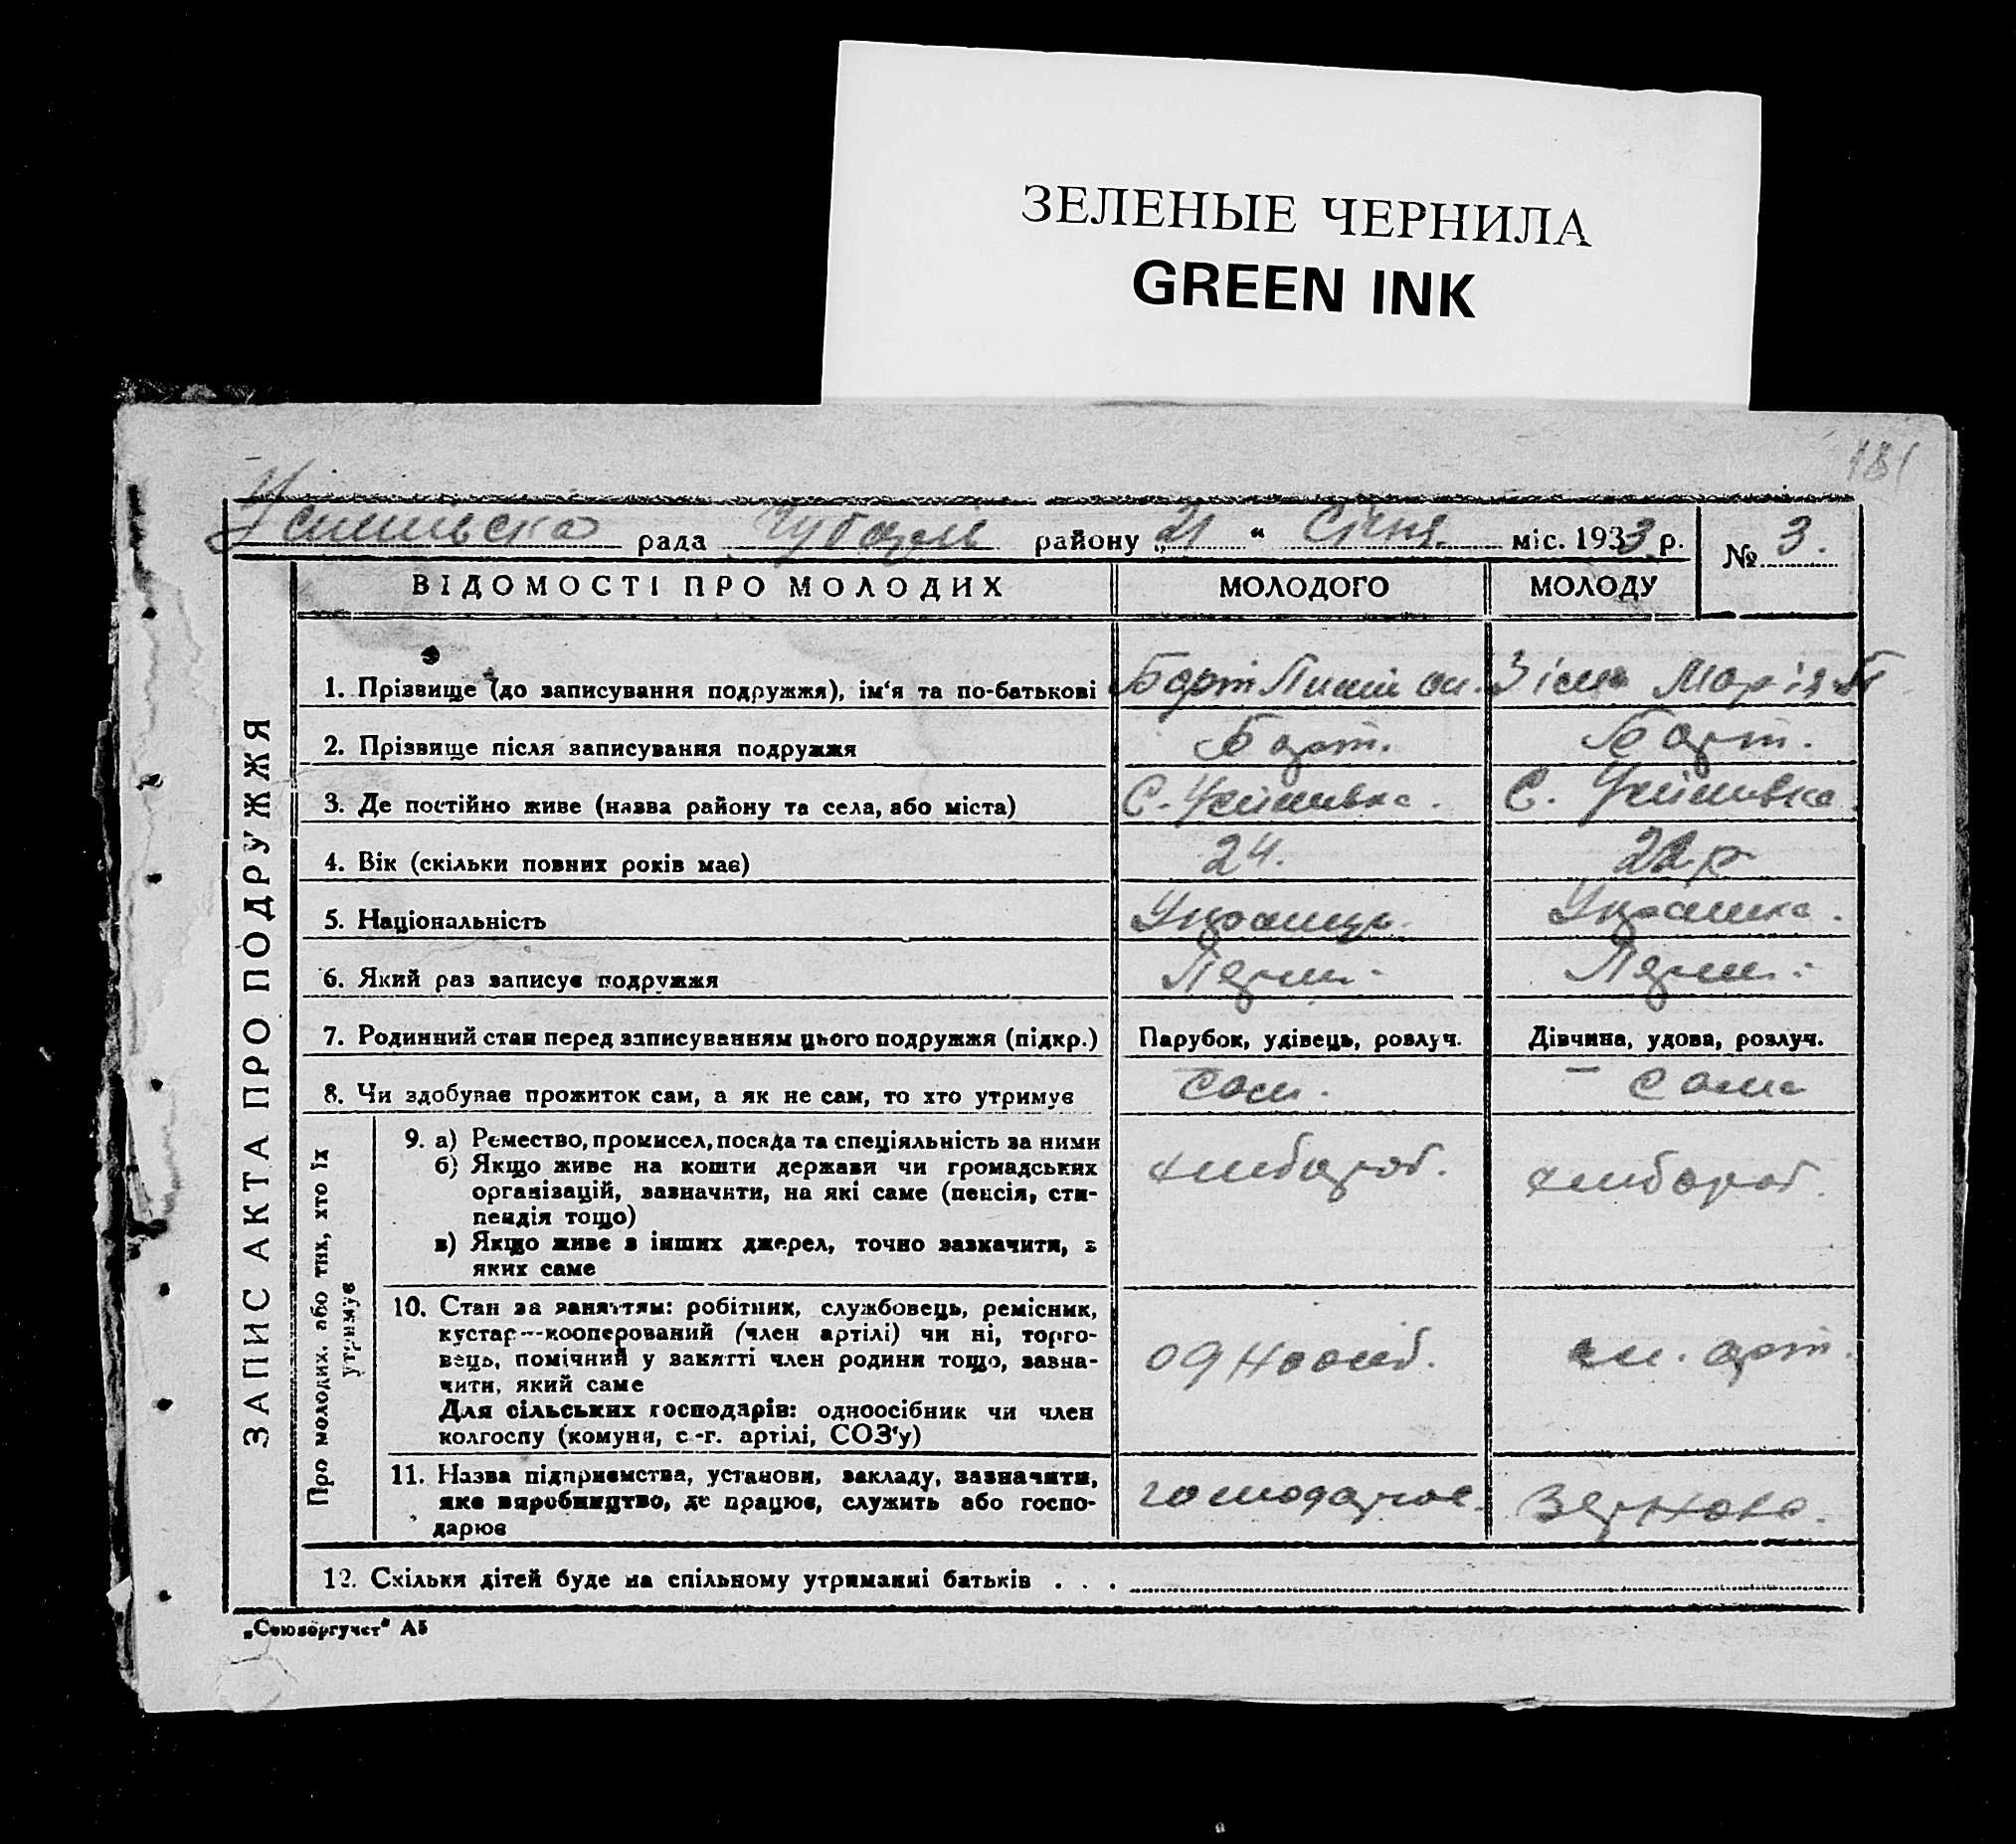 ЗЕЛЕНЫЕ ЧЕРНИЛА
GREEN INK
181
рада району „21“ Січня. міс. 1933 р. № 3.
ЗАПИС АКТА ПРО ПОДРУЖЖЯ
ВІДОМОСТІ ПРО МОЛОДИХ МОЛОДОГО МОЛОДУ
1. Прізвище (до записування подружжя), ім‘я та по-батькові Барт Марія
2. Прізвище після записування подружжя Барт. Барт.
3. Де постійно живе (назва району та села, або міста) с. с.
4. Вік (скільки повних років має) 24.
5. Національність
6. Який раз записує подружжя Перш. Перш.
7. Родинний стан перед записуванням цього подружжя (підкр.) Парубок, удівець, розлуч. Дівчина, удова, розлуч.
8. Чи здобуває прожиток сам, а як не сам, то хто утримує сам. сама
Про молодих, або тих, хто їх
утримує
9. а) Ремество, промисел, посада та спеціяльність за ними хлібороб. хлібороб.
б) Якщо живе на кошти держави чи громадських
організацій, зазначити, на які саме (пенсія, сти-
пендія тощо)
в) Якщо живе з інших джерел, точно зазначити, з
яких саме
10. Стан за заняттям: робітник, службовець, ремісник,
кустар—кооперований (член артілі) чи ні, торго-
вець, помічний у занятті член родини тощо, зазна-
чити, який саме одноосіб. чл. арт.
Для сільських господарів: одноосібник чи член
колгоспу (комуни, с.-г. артілі, СОЗ‘у)
11. Назва підприємства, установи, закладу, зазначити,
яке виробництво, де працює, служить або госпо-
дарює Зернова.
12. Скільки дітей буде на спільному утриманні батьків . . .
„Союзоргучет“ А5